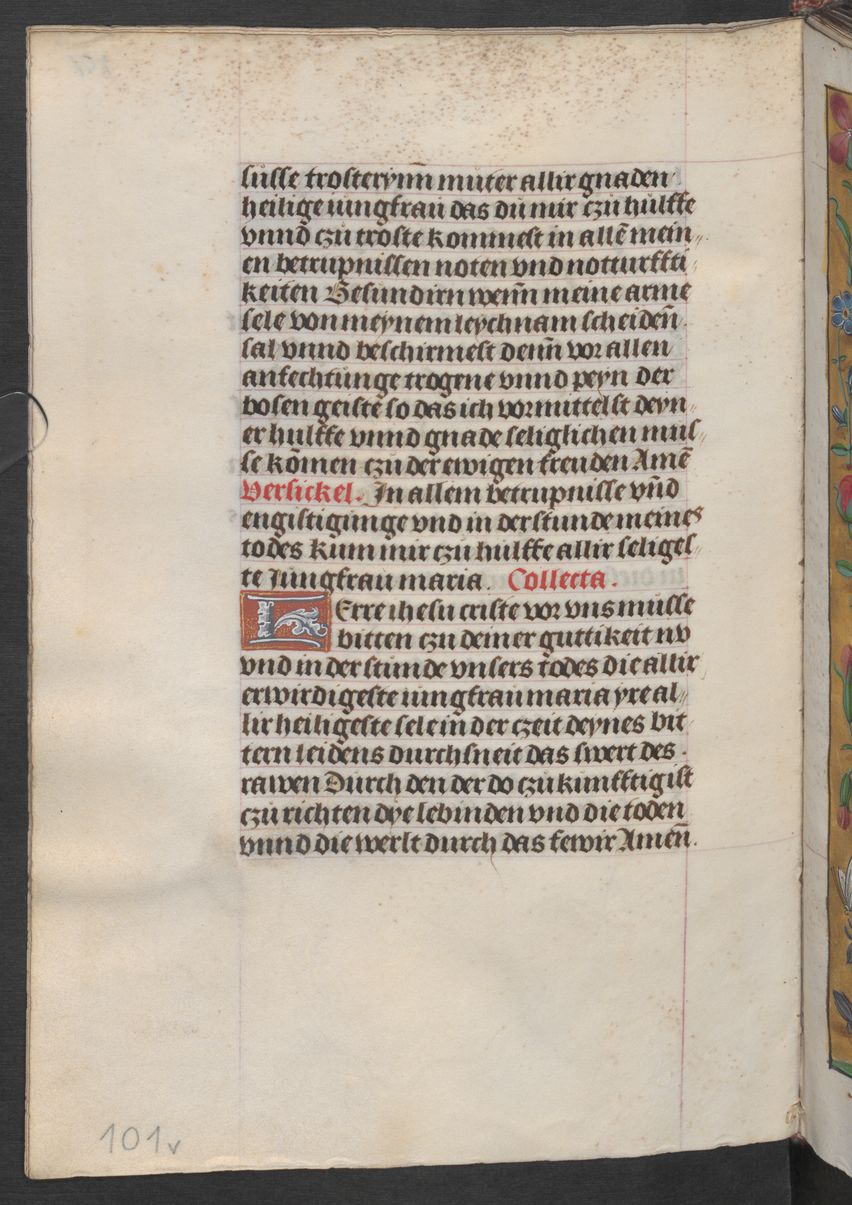 susse trosterynn muter allir gnaden
heilige iungfrau das du mir czu hulffe
vnnd czu troste kommest in allē mein⸗
en betrupnissen noten vnd notturffti⸗
keiten Besundirn wenn̄ meine arme
sele von meynem leychnam scheiden̄
sal vnnd beschirmest denn̄ vor allen
anfechtunge trogene vnnd peyn der
bosen geistē so das ich vormittelst deyn⸗
er hulffe vnnd gnade seliglichen mus⸗
se kōmen czu der ewigen freuden Amē
Versickel. In allem betrupnisse vn̄d
engistigunge vnd in der stunde meines
todes kum mir czu hulffe allir seliges⸗
te Jungfrau maria. Collecta.
HErre ihesu criste vor vns musse
bitten czu deiner guttikeit nv
vnd in der stunde vnsers todes die allir
erwirdigeste iungfrau maria yre al⸗
lir heiligeste sele in der czeit deynes bit
tern leidens durchsneit das swert des
rawen Durch den der do czukunfftig ist
czu richten dye lebinden vnd die toden
vnnd die werlt durch das fewir Amen̄.
101v